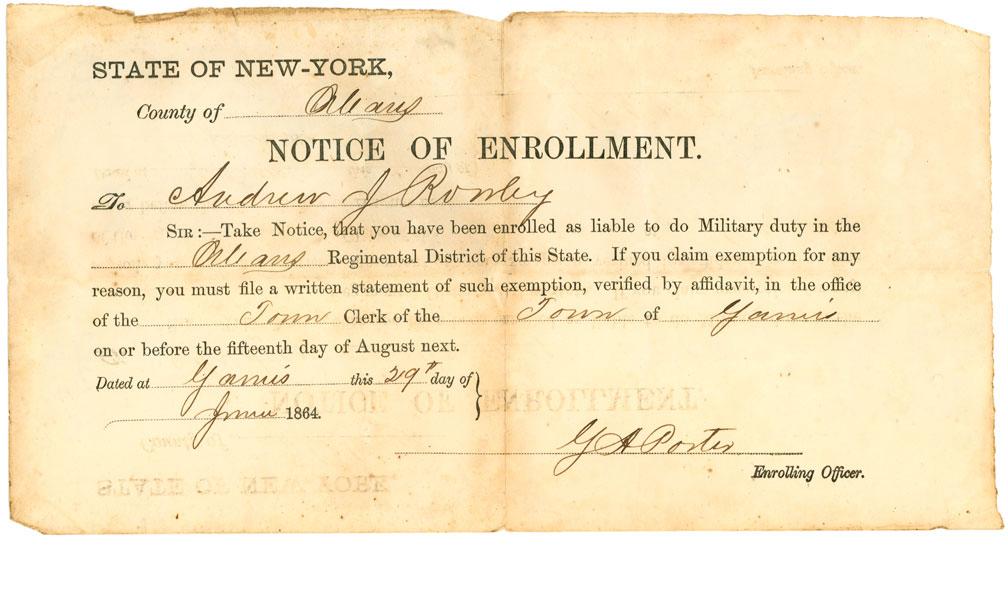 STATE OF NEW-YORK,
County of Orleans
NOTICE OF ENROLLMENT.
To Andrew J Rowley
SIR:—Take Notice, that you have been enrolled as liable to do Military duty in the
Orleans Regimental District of this State. If you claim exemption for any
reason, you must file a written statement of such exemption, verified by affidavit, in the office
of the Town Clerk of the Town of
on or before the fifteenth day of August next.
Dated at this 29th day of
June 1864.
G A Porter
Enrolling Officer.